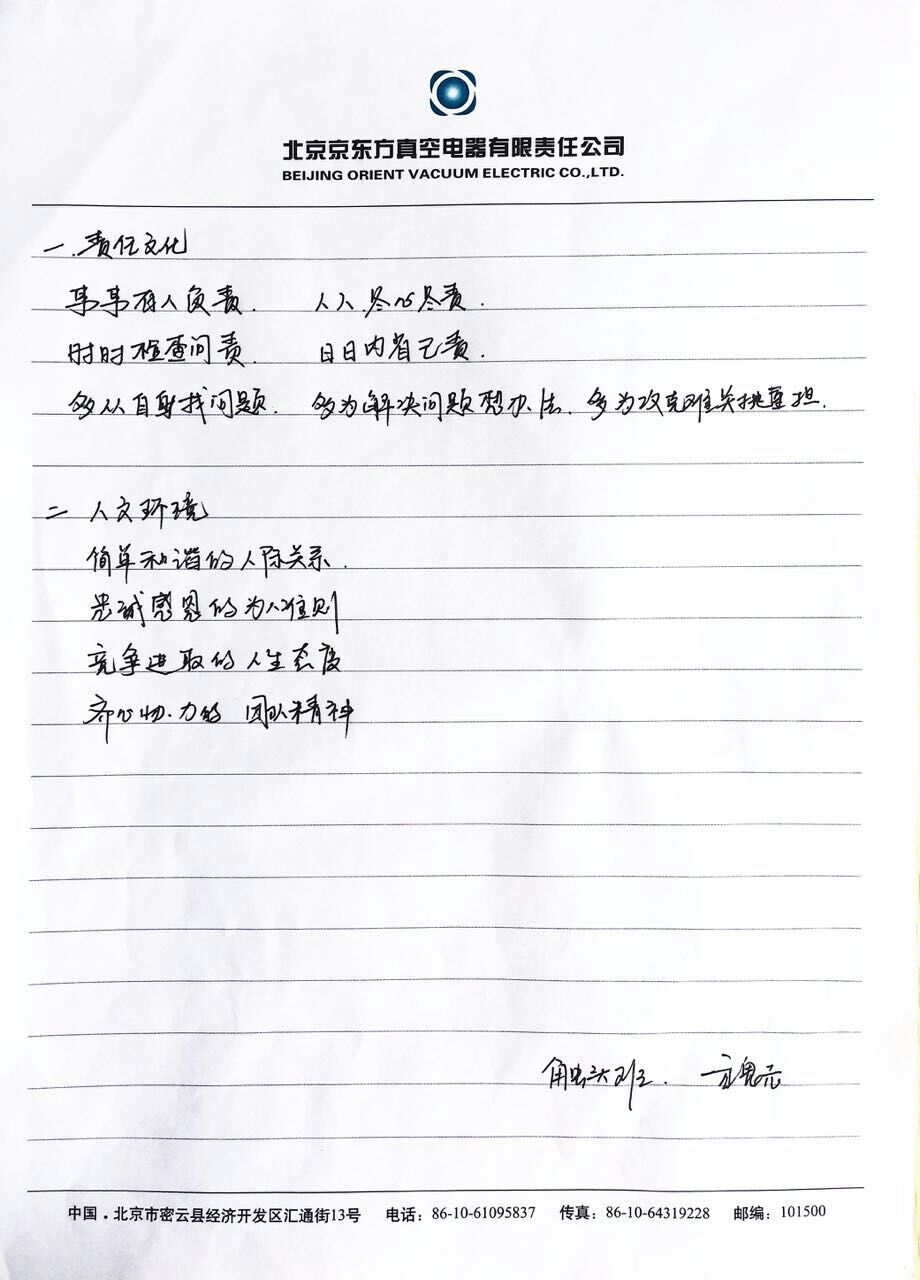 北京京东方真空电器有限责任公司
BEIJING ORIENT VACUUM ELECTRIC CO.,LTD.
一.责任文化
事事有人负责. 人人尽心尽责.
时时检查问责. 日日内省己责.
多从自身找问题. 多为解决问题想办法. 多为攻克难关挑重担.
二 人文环境
简单和谐的人际关系.
忠诚感恩的为人准则
竞争进取的人生态度
齐心协力的 团队精神
触头班.
中国·北京市密云县经济开发区汇通街13号 电话：86-10-61095837 传真：86-10-64319228 邮编：101500